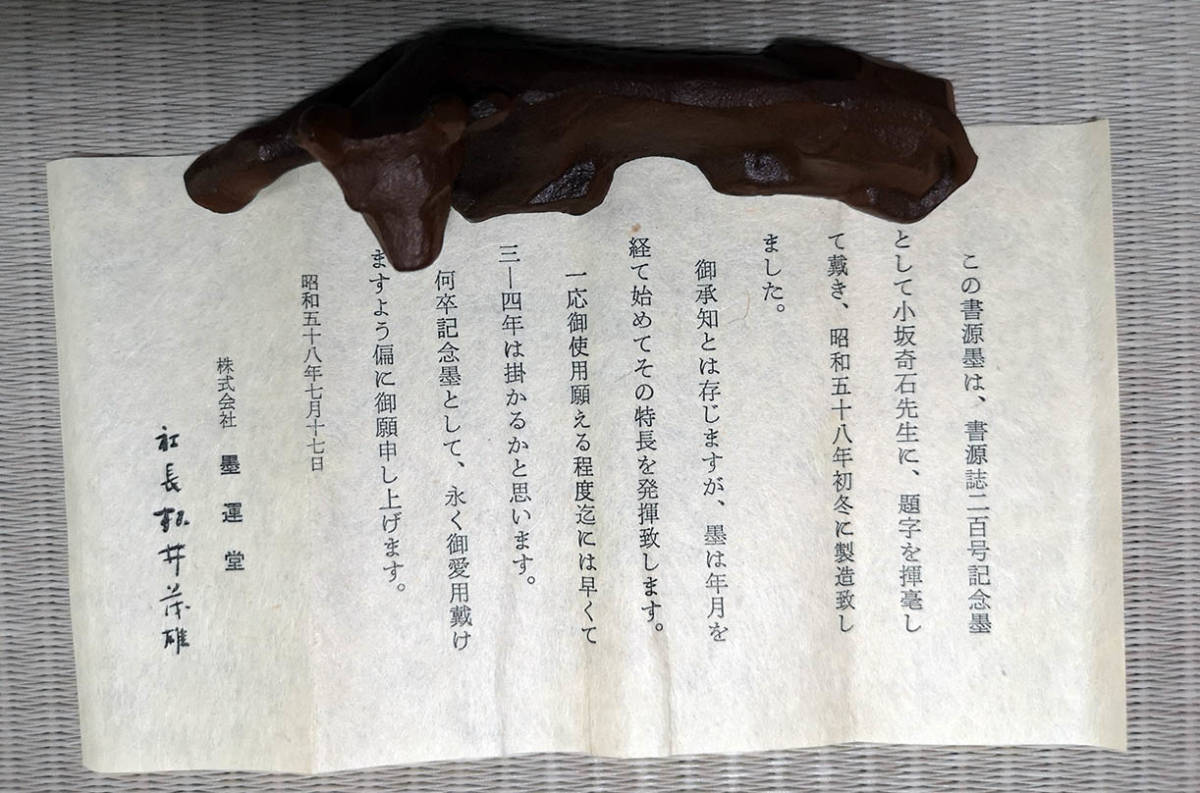 この書源墨は、書源誌二百号記念墨
として小坂奇石先生に、題字を揮毫し
て戴き、昭和五十八年初冬に製造致し
ました。
御承知とは存じますが、墨は年月を
経て始めてその特長を発揮致します。
一応御使用願える程度迄には早くて
三―四年は掛かるかと思います。
何卒記念墨として、永く御愛用戴け
ますよう偏に御願申し上げます。
昭和五十八年七月十七日
株式会社 墨運堂
社長 松井茂雄